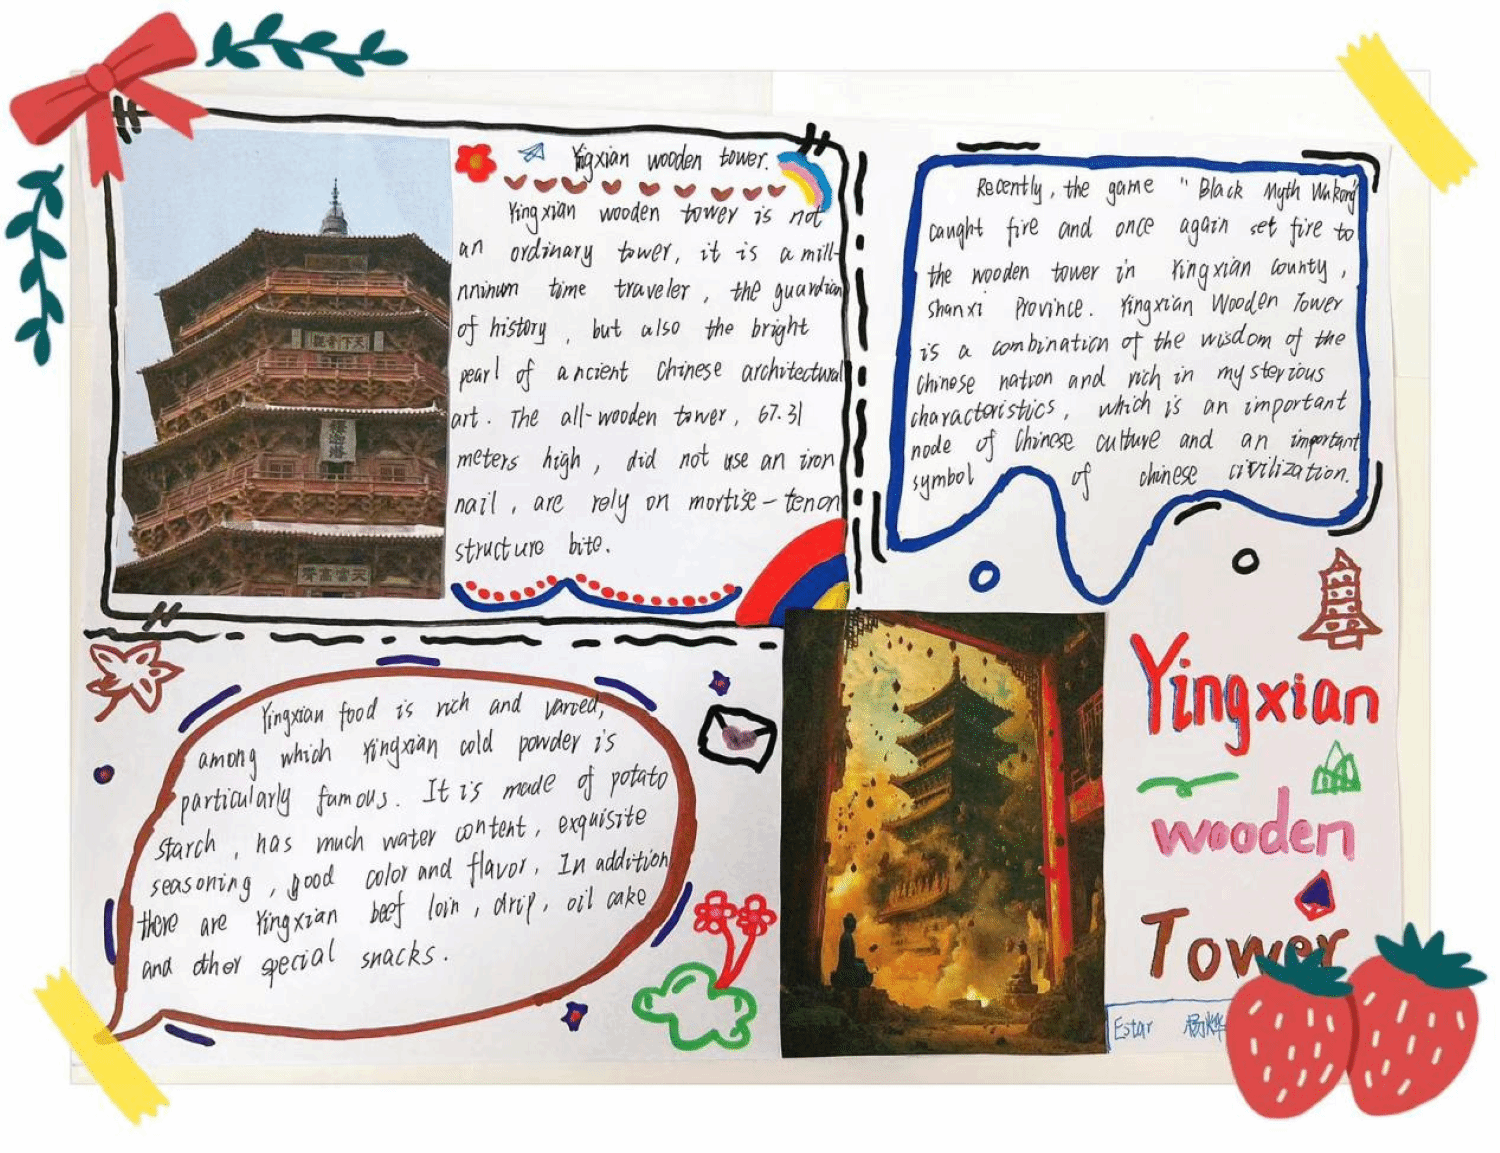 Yingxian wooden tower.
Yingxian wooden tower is not
an ordinary tower, it is a mill-
nninum time traveler, the guardian
of history, but also the bright
pearl of ancient Chinese architectural
art. The all-wooden tower, 67.31
meters high, did not use an iron
nail, are rely on mortise-tenon
structure bite.
天下奇觀
釋迦塔
天宮高聳
Recently, the game "Black Myth Wukong"
caught fire and once again set fire to
the wooden tower in Yingxian County,
Shanxi Province. Yingxian Wooden Tower
is a combination of the wisdom of the
Chinese nation and rich in mysterious
characteristics, which is an important
node of Chinese culture and an important
symbol of chinese civilization.
Yingxian food is rich and varied,
among which Yingxian cold powder is
particularly famous. It is made of potato
starch, has much water content, exquisite
seasoning, good color and flavor, In addition
there are Yingxian beef loin, drip, oil cake
and other special snacks.
Yingxian
wooden
Tower
Estar 杨烨